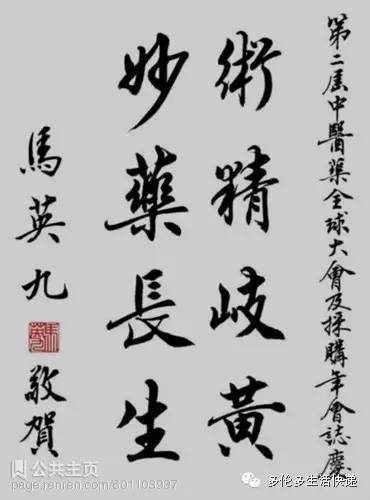 第二屆中醫藥全球大會及採購年會誌慶
術精岐黃
妙藥長生
馬英九
敬賀
公共主页
page.renren.com/601103997
多伦多生活快递